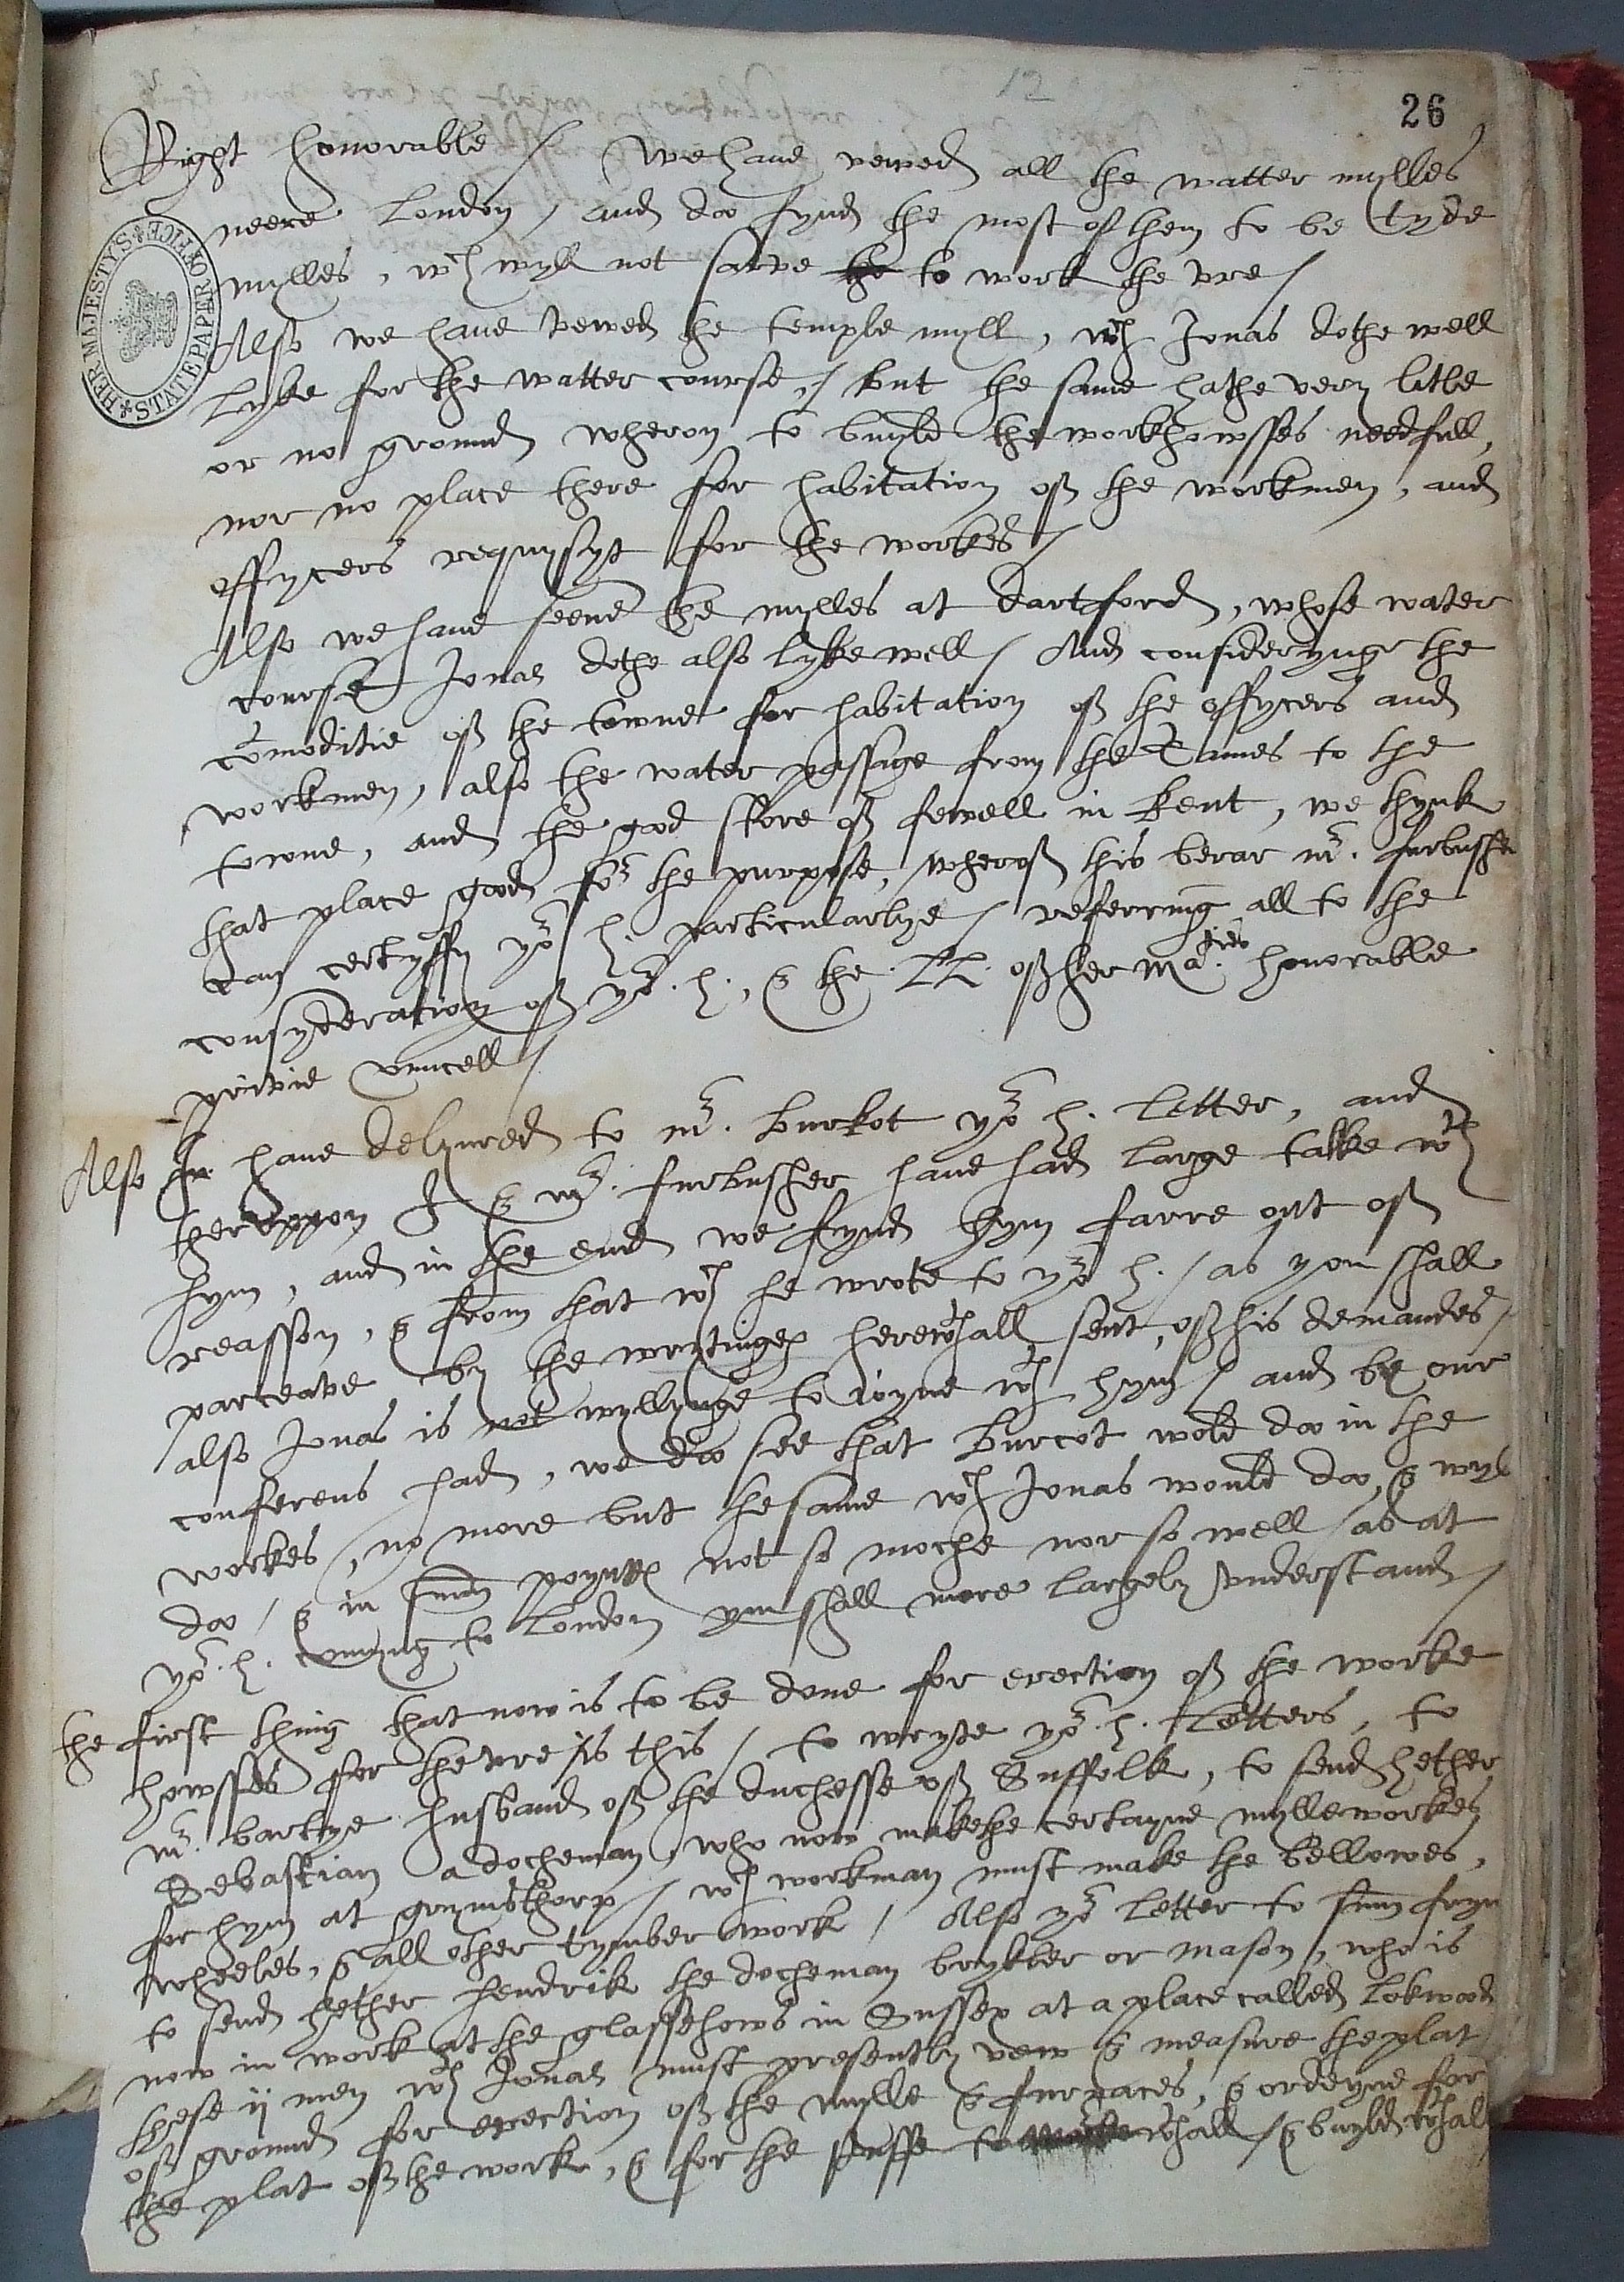 12
26
Right honorable / We have vewed all the watter mylles
neere London / and doo fynd the most of them to be tyde
mylles, wch wyll not sarve the to work the vre /
Also we have vewed the temple myll, wch Jonas dothe well
lyke for the watter course, / but the same hathe very litle
or no grownd wheron to buyld the workhowsses needfull,
nor no place there for habitation of the workmen, and
offycers requysyt for the workes /
Also we have seene the mylles at dartford, whose water
course Jonas dothe also lyke well / And considerynge the
comoditie of the towne for habitation of the offycers and
workmen, also the water passage from the Tames to the
towne, and the good store of fewell in Kent, we thynk
that place good for the purpose, wherof this berar mr. furbusher
can certyffy yor h. particularlye / referring all to the
consyderation of yor. h., & the LL. of her Maties honorable
privie cuncell /
Also I have delyvred to mr. burkot yor h. letter, and
theruppon I & mr. furbusher have had large talke wth
hym, and in the end we fynd hym farre out of
reasson, & from that wch he wrote to yor h. / as you shall
parceave by the wrytinges herewthall sent, of his demandes /
also Jonas is not wyllynge to joyne wth hym / and by our
conferens had, we doo see that burcot wold doo in the
workes, no more but the same wch Jonas would doo, & wyl
doo / & in sum poyntes not so moche nor so well / as at
yor. h. comyng to London you shall more largely understand /
the first thing that now is to be done for erection of the worke
howsses for the vre is this / to wryte yor. h. letters, to
mr. bartye husband of the duchesse of Suffolk, to send hether
Sebastian a docheman, who now makethe certayne mylleworkes
for hym at grymsthorp / wch workman must make the bellowes,
wheeles, & all other tymber work / Also yor letter to sum fryn
to send hether hendrik the docheman brykler or mason, who is
now in work at the glassehows in Sussex at a place called lokwood
these ij men wth Jonas must presently vew & measure the plat
of grownd for erection of the mylle & furnaces, & ordeyne for
the plat of the work, & for the stuffe to wthall / & buyld wthall
HER MAJESTYS STATE PAPER OFFICE